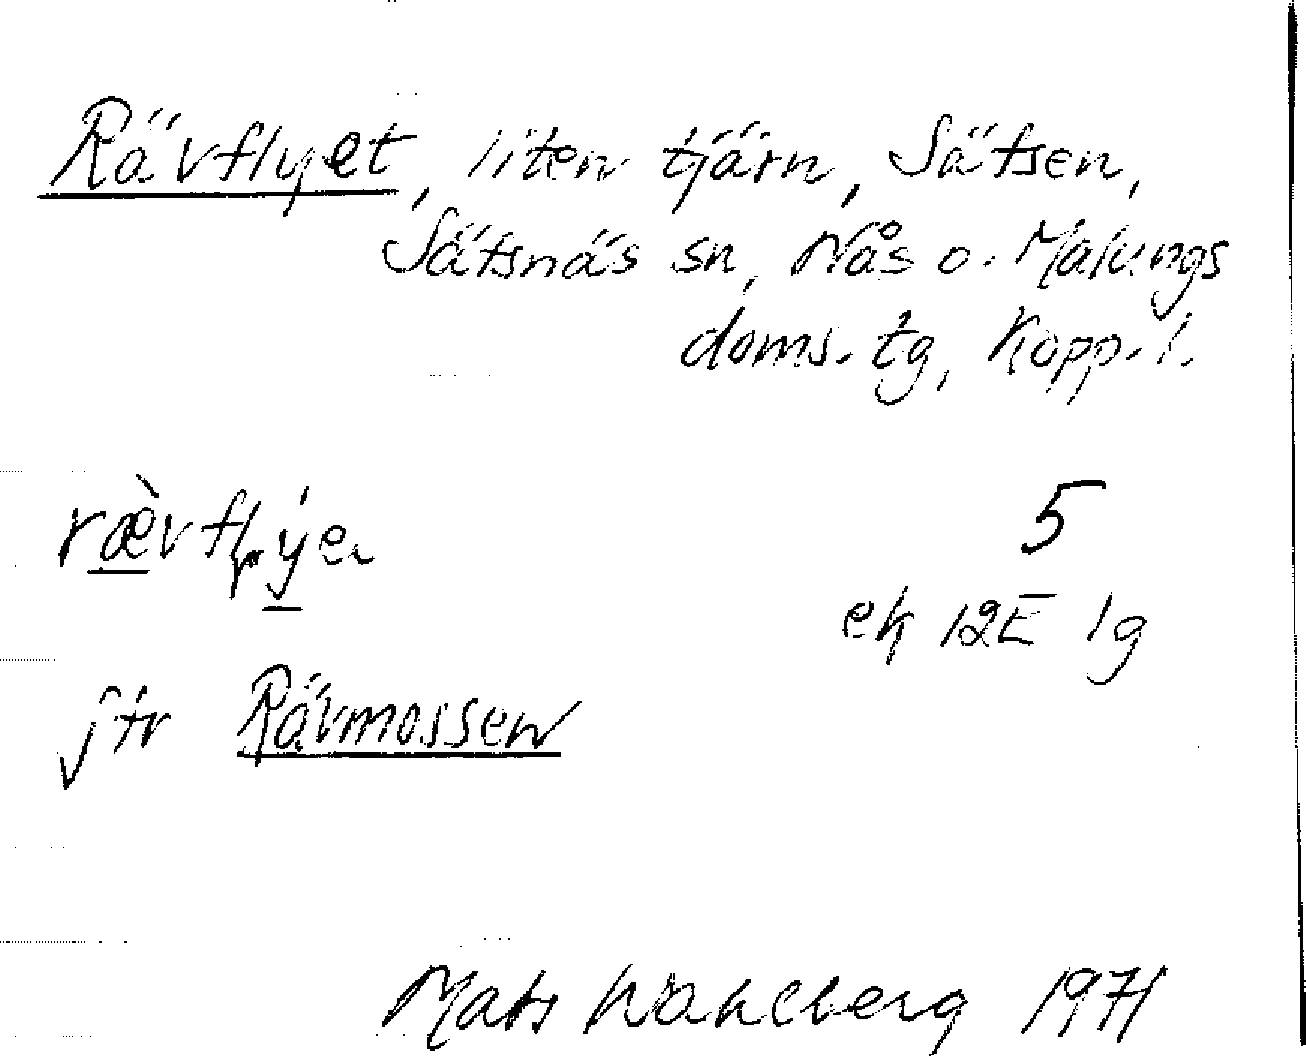 Rävflyet, liten tjärn, Sätsen,
Sätsnäs sn, Nås o. Malungs
doms. tg, Kopp. l.
ræ̀vflýe
5
ek 12E 1g
jfr Rävmossen
Mats Wahlberg 1971